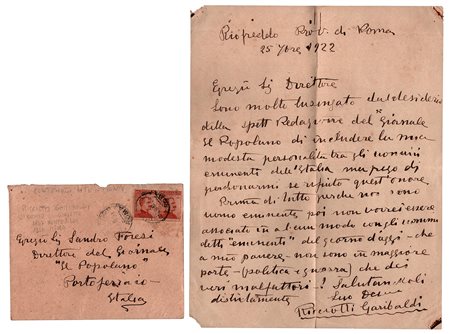 Riofreddo Prov. di Roma
25 7bre 1922
Egregio Sig Direttore
Sono molto lusingato dal desiderio
della spett Redazione del "Giornale
Il Popolano" di includere la mia
modesta personalità tra gli uomini
eminenti dell'Italia ma prego di
perdonarmi se rifiuto quest'onore.
Prima di tutto perchè non sono
uomo eminente poi non vorrei essere
associato in alcun modo con gli uomini
detti "eminenti" del giorno d'oggi - che
a mio parere - non sono in maggiore
parte - (politica e guerra) che dei
veri malfattori! Salutandoli
distintamente
Suo Dev
Ricciotti Garibaldi
Egregio Sig Sandro Foresi
Direttore del Giornale
"Il Popolano"
Portoferraio
Italia